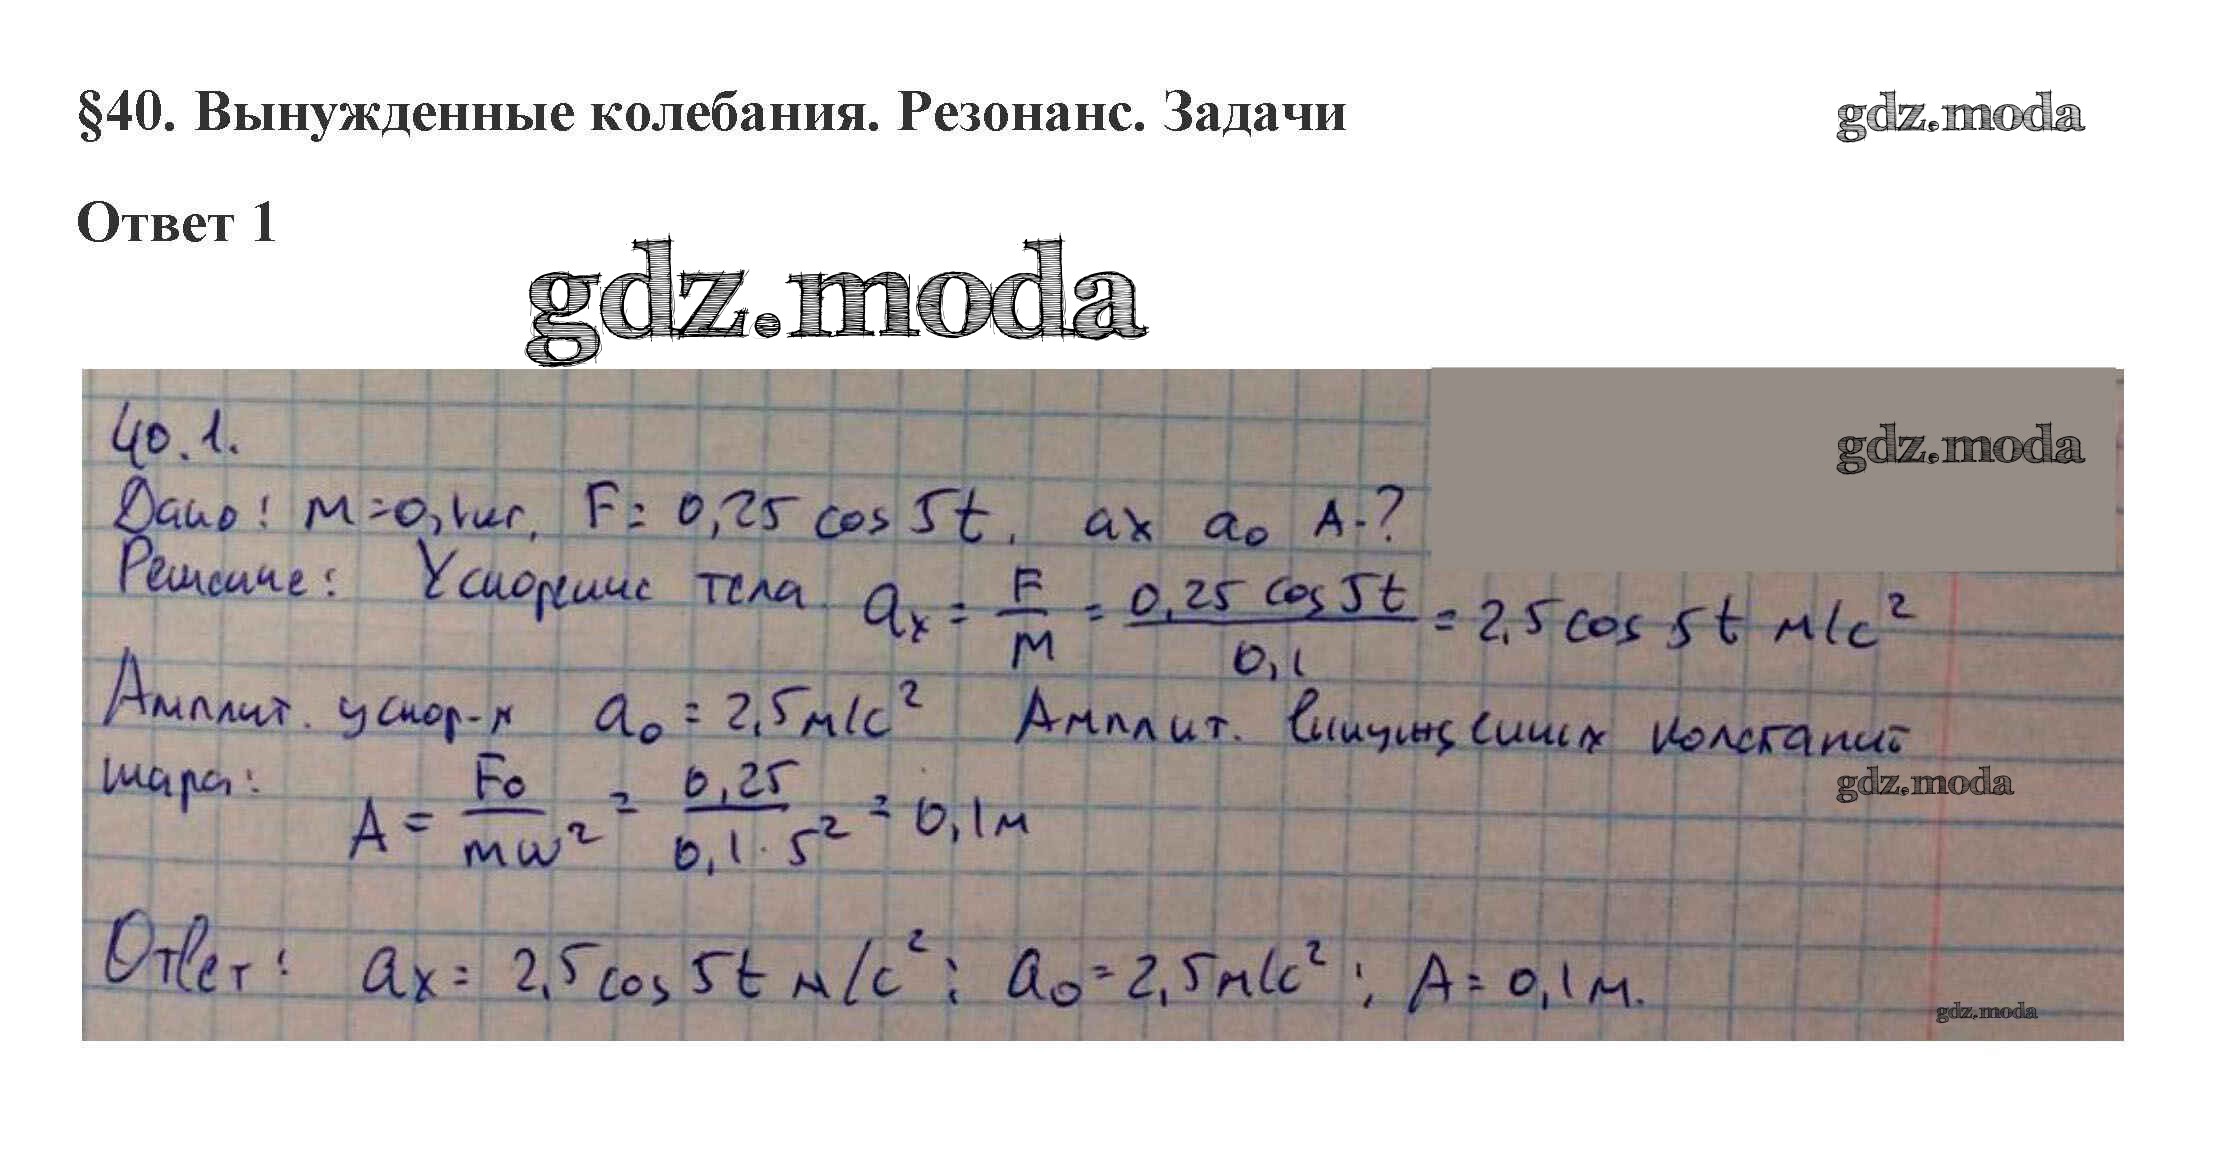 §40. Вынужденные колебания. Резонанс. Задачи
gdz.moda
Ответ 1
gdz.moda
gdz.moda
40.1.
Дано: m=0,1кг, F= 0,25 cos 5t. ax a₀ A-?
Решение: Ускорение тела aₓ = F/m = 0,25 cos 5t / 0,1 = 2,5 cos 5t м/с²
Амплит. ускор-я a₀ = 2,5м/с² Амплит. вынужденных колебаний
шара:
gdz.moda
A = F₀/mω² = 0,25/0,1·5² = 0,1м
Ответ: aₓ = 2,5 cos 5t м/с²; a₀=2,5м/с²; A=0,1м.
gdz.moda